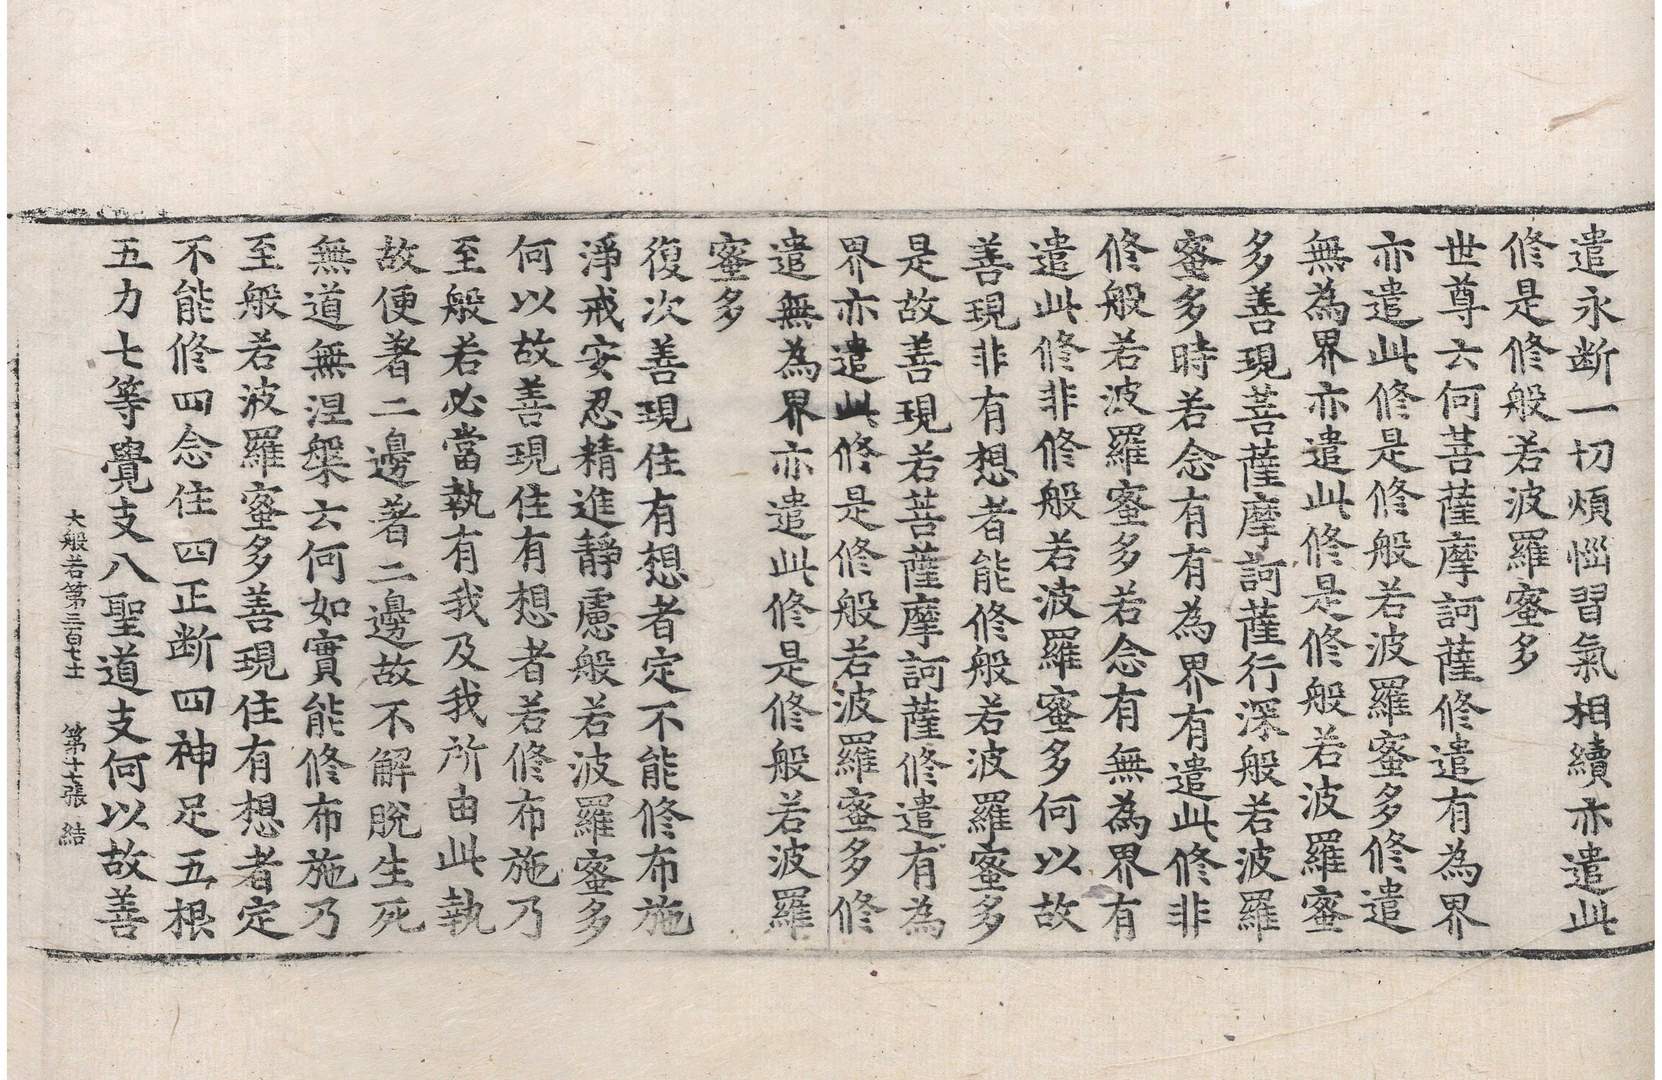 遣永断一切煩惱習氣相續亦遣此
修是修般若波羅蜜多
世尊云何菩薩摩訶薩修遣有為界
亦遣此修是修般若波羅蜜多修遣
無為界亦遣此修是修般若波羅蜜
多善現菩薩摩訶薩行深般若波羅
蜜多時若念有有為界有遣此修非
修般若波羅蜜多若念有無為界有
遣此修非修般若波羅蜜多何以故
善現非有想者能修般若波羅蜜多
是故善現若菩薩摩訶薩修遣有為
界亦遣此修是修般若波羅蜜多修
遣無為界亦遣此修是修般若波羅
蜜多
復次善現住有想者定不能修布施
淨戒安忍精進靜慮般若波羅蜜多
何以故善現住有想者若修布施乃
至般若必當執有我及我所由此執
故便著二邊著二邊故不解脫生死
無道無涅槃云何如實能修布施乃
至般若波羅蜜多善現住有想者定
不能修四念住四正断四神足五根
五力七等覺支八聖道支何以故善
大般若第三百七十 第十七張 結